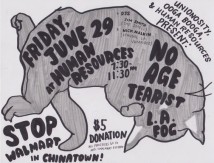 UNIONOSITY,
OOGA BOOGA,
& HUMAN RESOURCES
PRESENT:
FRIDAY,
JUNE 29
AT HUMAN
RESOURCES
7:30-
11:30PM
NO
AGE
TEARIST
L.A.
FOG
STOP
WALMART
IN CHINATOWN!
$5
DONATION